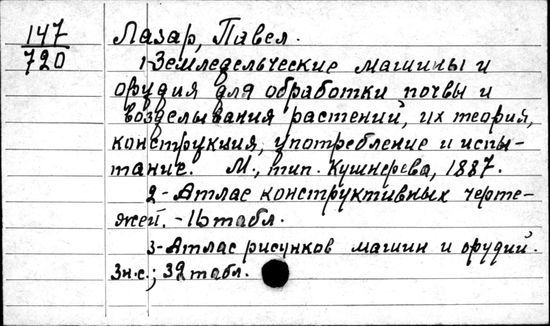 147
720
Лазар, Павел.
1-Земледельческие машины и
орудия для обработки почвы и
возделывания растений, их теория,
конструкция, употребление и испы-
тание. М., тип. Кушнерева, 1887.
2-Атлас конструктивных черте-
жей. -16 табл.
3-Атлас рисунков машин и орудий.
3н.с.; 32 табл.